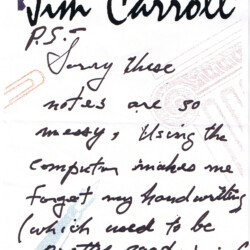 Jim Carroll
P.S.-
Sorry these
notes are so
messy, Using the
computer makes me
forget my handwriting
(which used to be